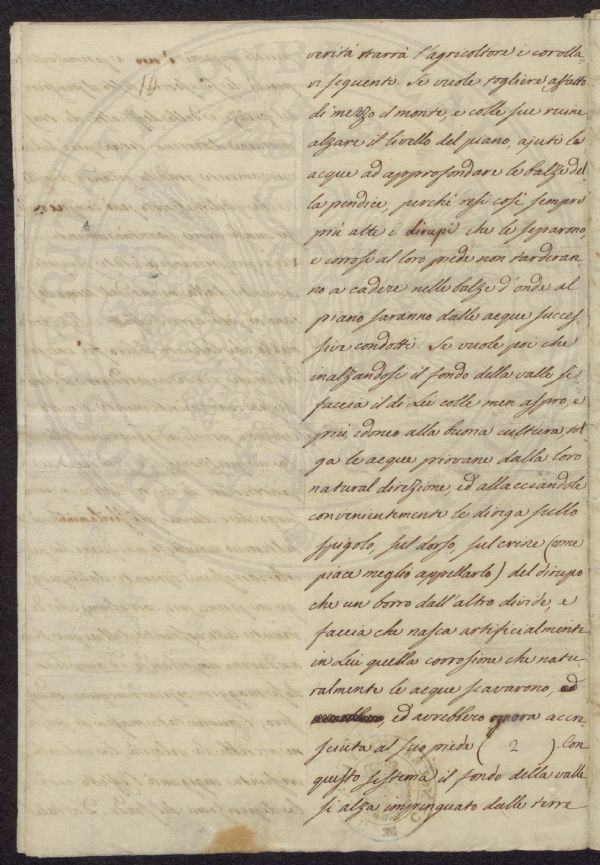 10
verità trarrà l'agricoltore i corolla-
ri seguenti. Se vuole togliere affatto
di mezzo il monte, e colle sue ruine
alzare il livello del piano, ajuti le
acque ad approfondare le balze del
la pendice, perchè resi così sempre
più alti i dirupi che le separono,
e corrosi al loro piede non tarderan-
no a cadere nelle balze d'onde al
piano saranno dalle acque succes-
sive condotti. Se vuole poi che
inalzandosi il fondo della valle si
faccia il di Lei colle men aspro, e
più idoneo alla buona cultura tol
ga le acque piovane dalla loro
natural direzione, ed allacciandole
convenientemente le diriga sullo
spigolo, sul dorso, sul crine (come
piace meglio appellarlo) del dirupo
che un borro dall'altro divide, e
faccia che nasca artificialmente
in Lui quella corrosione che natu-
ralmente le acque scavarono, ed
ed avrebbero ognora accre-
sciuta al suo piede ( 2 ). Con
questo sistema il fondo della valle
si alza impinguato dalle terre